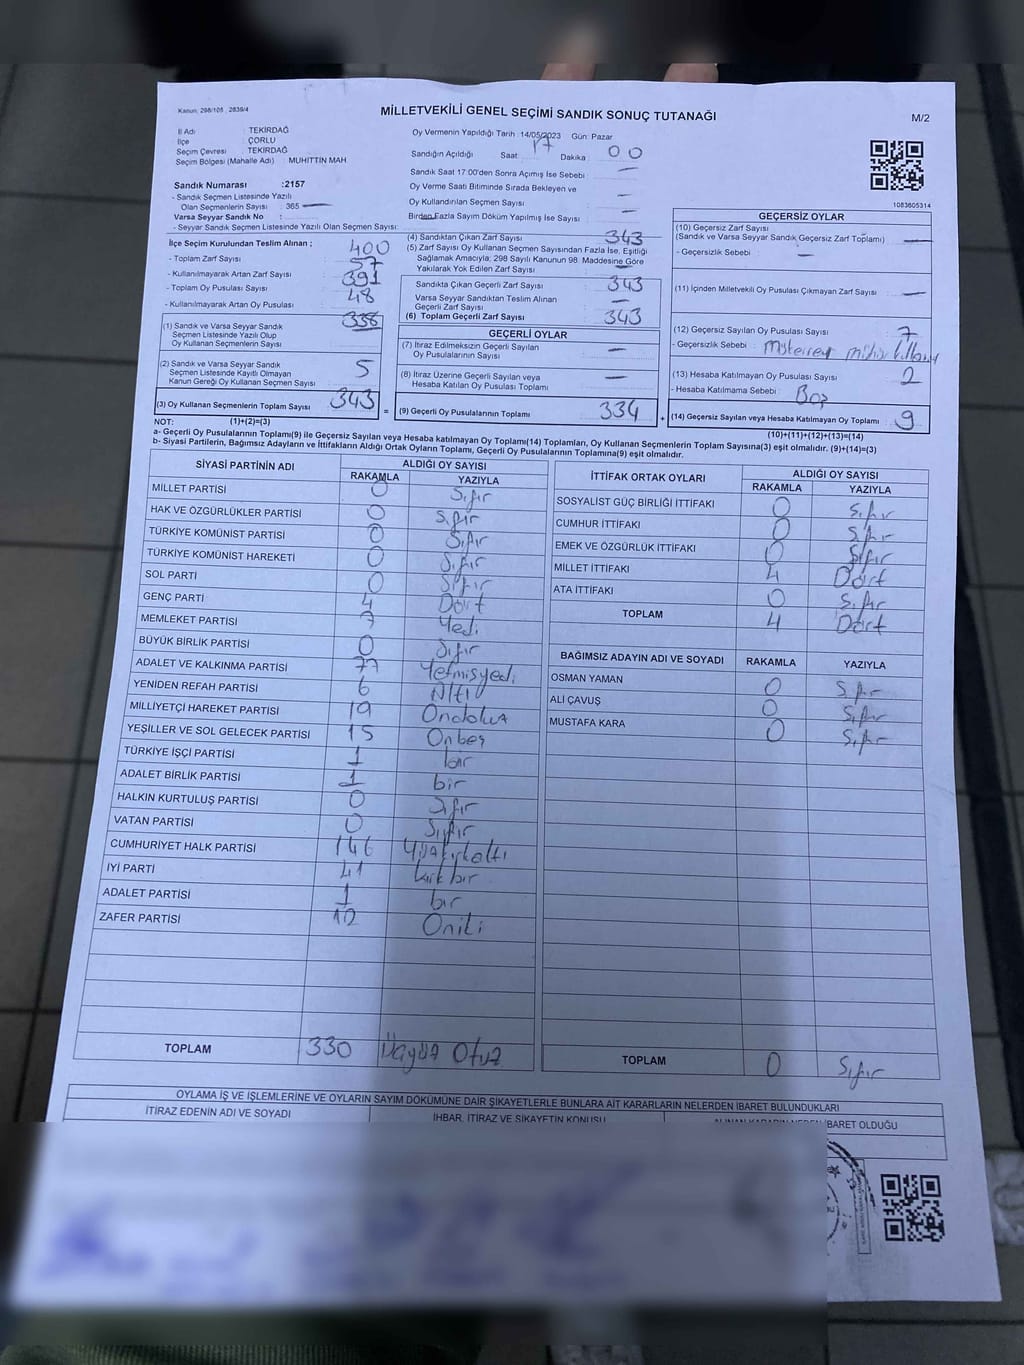 Kanun: 298/105 , 2839/4
MİLLETVEKİLİ GENEL SEÇİMİ SANDIK SONUÇ TUTANAĞI
M/2
İl Adı : TEKİRDAĞ
İlçe : ÇORLU
Seçim Çevresi : TEKİRDAĞ
Seçim Bölgesi (Mahalle Adı) : MUHITTIN MAH
Sandık Numarası :2157
- Sandık Seçmen Listesinde Yazılı
Olan Seçmenlerin Sayısı : 365
Varsa Seyyar Sandık No :
- Seyyar Sandık Seçmen Listesinde Yazılı Olan Seçmen Sayısı:
Oy Vermenin Yapıldığı Tarih :14/05/2023 Gün: Pazar
Sandığın Açıldığı Saat: 17 Dakika : 00
Sandık Saat 17:00'den Sonra Açımış İse Sebebi : —
Oy Verme Saati Bitiminde Sırada Bekleyen ve
Oy Kullandırılan Seçmen Sayısı : —
Birden Fazla Sayım Döküm Yapılmış İse Sayısı : —
1083605314
İlçe Seçim Kurulundan Teslim Alınan ;
- Toplam Zarf Sayısı : 400
- Kullanılmayarak Artan Zarf Sayısı : 57
- Toplam Oy Pusulası Sayısı : 391
- Kullanılmayarak Artan Oy Pusulası : 48
(1) Sandık ve Varsa Seyyar Sandık
Seçmen Listesinde Yazılı Olup
Oy Kullanan Seçmenlerin Sayısı : 338
(2) Sandık ve Varsa Seyyar Sandık
Seçmen Listesinde Kayıtlı Olmayan
Kanun Gereği Oy Kullanan Seçmen Sayısı : 5
(3) Oy Kullanan Seçmenlerin Toplam Sayısı : 343
(1)+(2)=(3)
(4) Sandıktan Çıkan Zarf Sayısı : 343
(5) Zarf Sayısı Oy Kullanan Seçmen Sayısından Fazla İse, Eşitliği
Sağlamak Amacıyla; 298 Sayılı Kanunun 98. Maddesine Göre
Yakılarak Yok Edilen Zarf Sayısı : —
Sandıkta Çıkan Geçerli Zarf Sayısı : 343
Varsa Seyyar Sandıktan Teslim Alınan
Geçerli Zarf Sayısı : —
(6) Toplam Geçerli Zarf Sayısı : 343
GEÇERLİ OYLAR
(7) İtiraz Edilmeksizin Geçerli Sayılan
Oy Pusulalarının Sayısı : —
(8) İtiraz Üzerine Geçerli Sayılan veya
Hesaba Katılan Oy Pusulası Toplamı : —
= (9) Geçerli Oy Pusulalarının Toplamı : 334
GEÇERSİZ OYLAR
(10) Geçersiz Zarf Sayısı
(Sandık ve Varsa Seyyar Sandık Geçersiz Zarf Toplamı) : —
- Geçersizlik Sebebi : —
(11) İçinden Milletvekili Oy Pusulası Çıkmayan Zarf Sayısı : —
(12) Geçersiz Sayılan Oy Pusulası Sayısı : 7
- Geçersizlik Sebebi :
(13) Hesaba Katılmayan Oy Pusulası Sayısı : 2
- Hesaba Katılmama Sebebi : Boş
+ (14) Geçersiz Sayılan veya Hesaba Katılmayan Oy Toplamı : 9
(10)+(11)+(12)+(13)=(14)
NOT:
a- Geçerli Oy Pusulalarının Toplamı(9) ile Geçersiz Sayılan veya Hesaba katılmayan Oy Toplamı(14) Toplamları, Oy Kullanan Seçmenlerin Toplam Sayısına(3) eşit olmalıdır. (9)+(14)=(3)
b- Siyasi Partilerin, Bağımsız Adayların ve İttifakların Aldığı Ortak Oyların Toplamı, Geçerli Oy Pusulalarının Toplamına(9) eşit olmalıdır.
SİYASİ PARTİNİN ADI ALDIĞI OY SAYISI
RAKAMLA YAZIYLA
MİLLET PARTİSİ 0 Sıfır
HAK VE ÖZGÜRLÜKLER PARTİSİ 0 Sıfır
TÜRKİYE KOMÜNİST PARTİSİ 0 Sıfır
TÜRKİYE KOMÜNİST HAREKETİ 0 Sıfır
SOL PARTİ 0 Sıfır
GENÇ PARTİ 4 Dört
MEMLEKET PARTİSİ 7 Yedi
BÜYÜK BİRLİK PARTİSİ 0 Sıfır
ADALET VE KALKINMA PARTİSİ 77 Yetmişyedi
YENİDEN REFAH PARTİSİ 6 Altı
MİLLİYETÇİ HAREKET PARTİSİ 19 Ondokuz
YEŞİLLER VE SOL GELECEK PARTİSİ 15 Onbeş
TÜRKİYE İŞÇİ PARTİSİ 1 bir
ADALET BİRLİK PARTİSİ 1 bir
HALKIN KURTULUŞ PARTİSİ 0 Sıfır
VATAN PARTİSİ 0 Sıfır
CUMHURİYET HALK PARTİSİ 146 Yüzkırkaltı
İYİ PARTİ 41 kırkbir
ADALET PARTİSİ 1 bir
ZAFER PARTİSİ 12 Oniki
TOPLAM 330 Üçyüz Otuz
İTTİFAK ORTAK OYLARI ALDIĞI OY SAYISI
RAKAMLA YAZIYLA
SOSYALİST GÜÇ BİRLİĞİ İTTİFAKI 0 Sıfır
CUMHUR İTTİFAKI 0 Sıfır
EMEK VE ÖZGÜRLÜK İTTİFAKI 0 Sıfır
MİLLET İTTİFAKI 4 Dört
ATA İTTİFAKI 0 Sıfır
TOPLAM 4 Dört
BAĞIMSIZ ADAYIN ADI VE SOYADI RAKAMLA YAZIYLA
OSMAN YAMAN 0 Sıfır
ALİ ÇAVUŞ 0 Sıfır
MUSTAFA KARA 0 Sıfır
TOPLAM 0 Sıfır
OYLAMA İŞ VE İŞLEMLERİNE VE OYLARIN SAYIM DÖKÜMÜNE DAİR ŞİKAYETLERLE BUNLARA AİT KARARLARIN NELERDEN İBARET BULUNDUKLARI
İTİRAZ EDENİN ADI VE SOYADI İHBAR, İTİRAZ VE ŞİKAYETİN KONUSU İBARET OLDUĞU